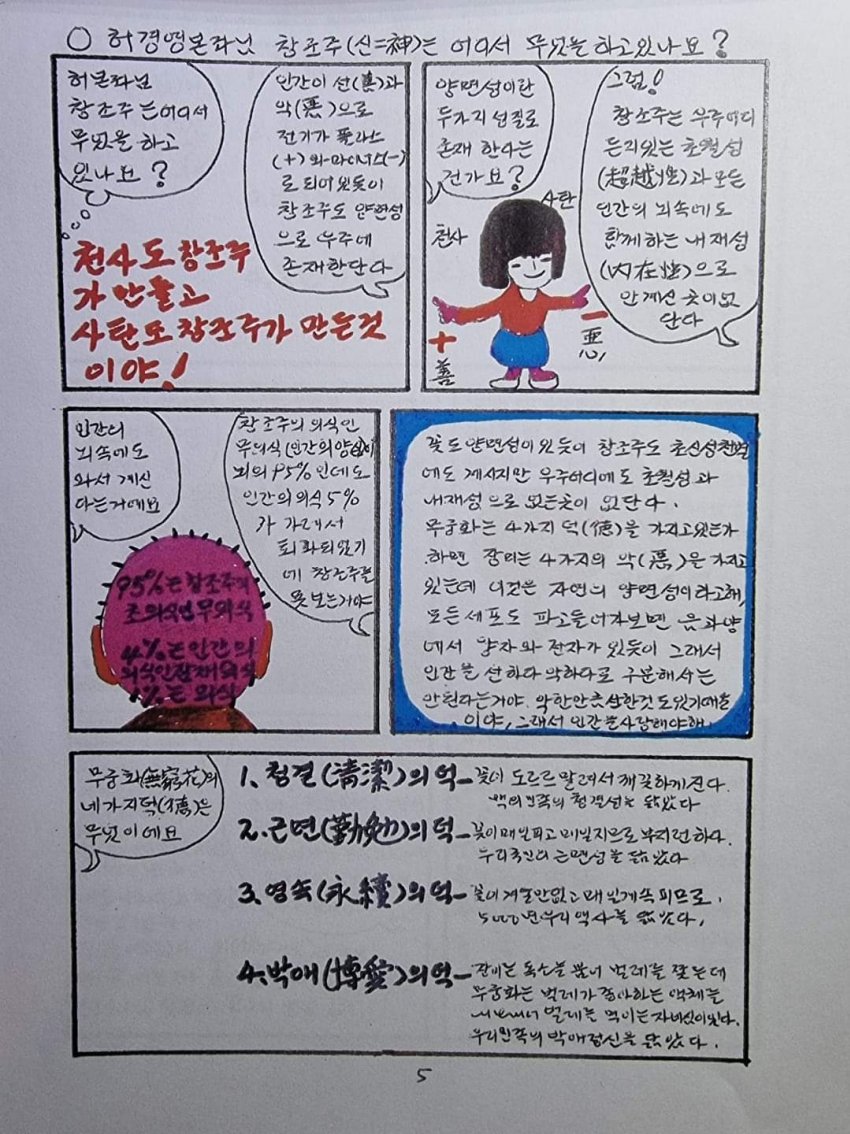 ○ 허경영본좌님 창조주(신=神)는 어디서 무엇을 하고있나요?
허본좌님
창조주는어디서
무엇을 하고
있나요?
인간이 선(善)과
악(惡)으로
전기가 플라스
(+)와마이너스(-)
로 되어있듯이
창조주도 양면성
으로 우주에
존재한단다
천사도창조주
가만들고
사탄도창조주가 만든것
이야!
양면성이란
두가지성질로
존재 한다는
건가요?
그럼!
창조주는 우주어디
든지있는 초월성
(超越性)과모든
인간의 뇌속에도
함께하는 내재성
(內在性)으로
안계신 곳이없
단다
사탄
천사
+
善
-
惡
인간의
뇌속에도
와서 계신
다는거예요
창조주의 의식인
무의식(인간의양심)이
뇌의 95%인데도
인간의의식 5%
가 가려서
퇴화되었기
에 창조주를
못보는거야
95%는창조주의
초의식인무의식
4%는인간의
의식인잠재의식
1%는 의식
꽃도양면성이있듯이 창조주도 초신성천별
에도 계시지만 우주어디에도 초월성과
내재성으로 없는곳이 없단다.
무궁화는 4가지 덕(德)을 가지고있는가
하면 장미는 4가지의 악(惡)은 가지고
있는데 이것은 자연의 양면성이라고해,
모든세포도 파고들어가보면 음과양
에서 양자와 전자가 있듯이 그래서
인간을 선하다악하다로 구분해서는
안된다는거야. 악한만큼선한것도있기때문
이야, 그래서 인간을사랑해야해.
무궁화(無窮花)의
네가지덕(德)은
무엇이에요
1. 청결(淸潔)의덕- 꽃이 도르르말려서깨끗하게진다.
백의민족의청결성을 닮았다
2. 근면(勤勉)의덕- 꽃이매일피고매일지므로 부지런하다.
우리국민의 근면성을 닮았다
3. 영속(永續)의덕- 꽃이 겨를만없고 매일계속 피므로,
5000년우리역사를 닮았다,
4. 박애(博愛)의덕- 장미는 독소를 뿜어 벌레를 쫓는데
무궁화는 벌레가 좋아하는 액체를
내보내어 벌레를 먹이는자비심이있다.
우리민족의박애정신을 닮았다.
5